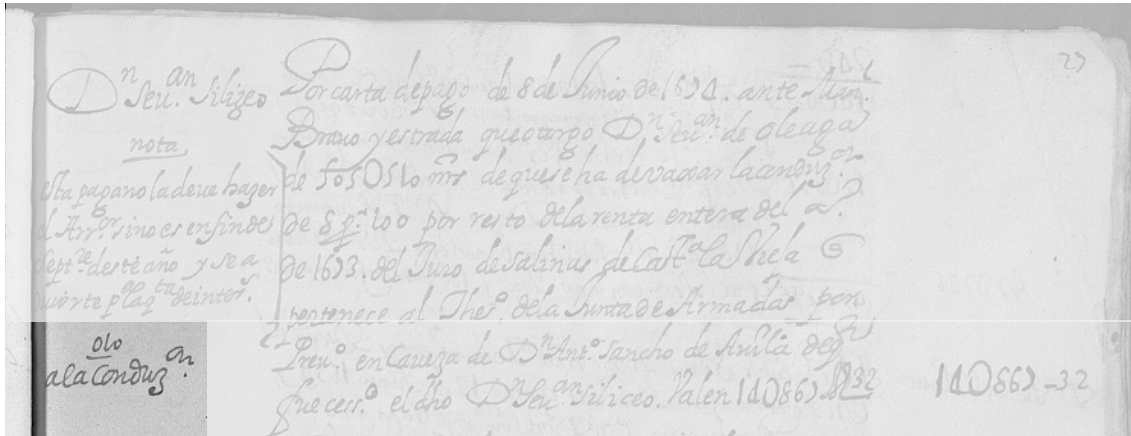 27
Dⁿ Seu.ᵃⁿ Silizeo
nota
esta paga no la deue hazer
el Arr.ᵒʳ sino es en fin de
Sept.ʳᵉ deste año y se a
p.ᵃ la q.ᵗᵃ de inter.ˢ
olo
a la Conduz.ᵒⁿ
Por carta de pago de 8 de Junio de 1694. ante Man.ˡ
Brauo y estrada que otorgo Dⁿ Seu.ᵃⁿ de oleaga
de mrs de que se ha de vaxar la conduz.ᵒⁿ
de 8 p.ʳ 100 por resto de la renta entera del a.º
de 1693. del Juro de Salinas de Cast.ᵃ la
pertenece al Thes.º de la Junta de Armadas por
Preu.º en Caueza de Dⁿ Ant.º Sancho de Auila de q
fue cess.º el dho Dⁿ Seu.ᵃⁿ Siliceo. Valen 14U869 32
14U869-32